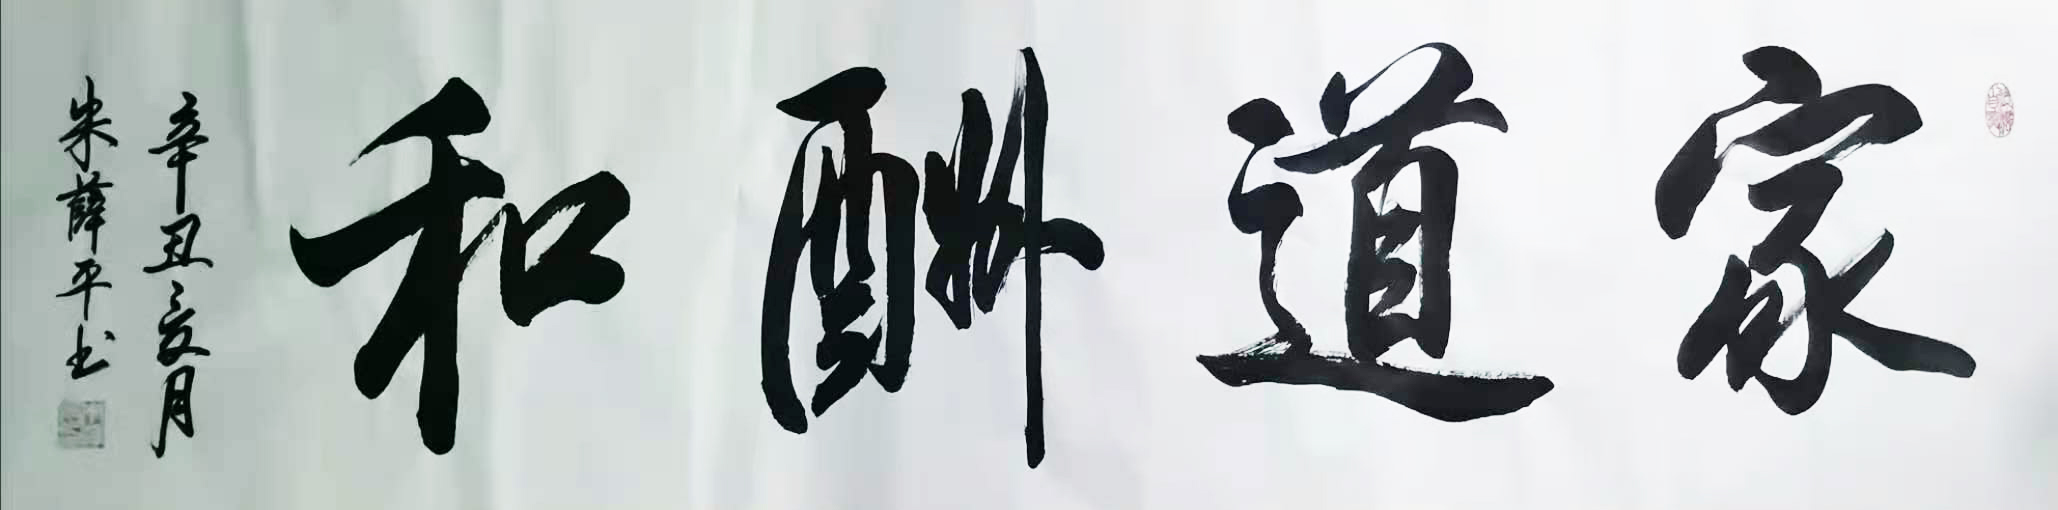 家道酬和
辛丑夏月
朱薛平书